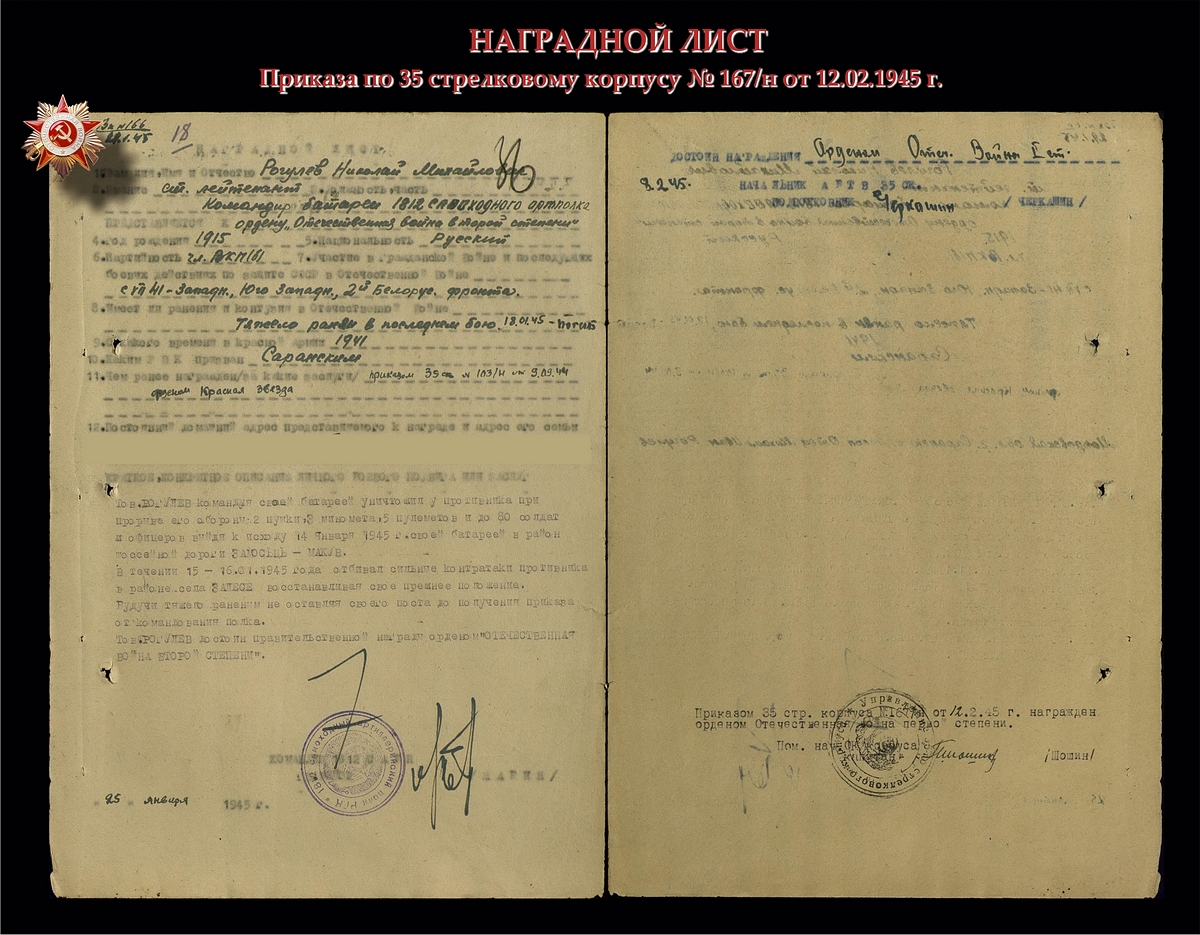 НАГРАДНОЙ ЛИСТ
Приказа по 35 стрелковому корпусу № 167/н от 12.02.1945 г.
18
НАГРАДНОЙ ЛИСТ
Имя и Отчество Рогулев Николай Михайлович
ст. лейтенант
Командир батареи 1812 самоходного артполка
ордену „Отечественная война второй степени"
4.Год рождения 1915 5.Национальность Русский
6.Партийность чл. ВКП(б) 7.Участие в гражданской войне и последующих
боевых действиях по защите СССР в Отечественной войне
с VII 41-Западн., Юго Западн., 2й Белорус. фронта.
8.Имеет ли ранения и контузии в Отечественной войне
Тяжело ранен в последнем бою 18.01.45 -
9. времени в красной армии 1941
10.Каким РВК призван Саранским
11.Чем ранее награжден/за какие заслуги/ приказом 35 ск № 103/н от 9.09.44
орденом Красная звезда
12.Постоянный домашний адрес представляемого к награде и адрес его семьи
КРАТКОЕ,КОНКРЕТНОЕ ОПИСАНИЕ ЛИЧНОГО БОЕВОГО ПОДВИГА ИЛИ ЗАСЛУГ
Тов.РОГУЛЕВ командуя своей батареей уничтожил у противника при
прорыве его обороны 2 пушки,3 миномета,5 пулеметов и до 80 солдат
и офицеров выйдя к исходу 14 января 1945 г.своей батареей в район
шоссейной дороги – МАКУВ.
В течении 15 – 16.01.1945 года отбивал сильные контратаки противника
в районе села ЗАЛЕСЕ восстанавливая свое прежнее положение.
Будучи тяжело раненим не оставляя своего поста до получения приказа
от командования полка.
Тов.РОГУЛЕВ достоин правительственной награды орденом"ОТЕЧЕСТВЕННАЯ
ВОЙНА ВТОРОЙ СТЕПЕНИ".
25 января 1945 г.
ДОСТОИН НАГРАЖДЕНИЯ Орденом Отеч. Войны I ст.
8.2.45. НАЧАЛЬНИК АРТВ 35 СК.
ПОДПОЛКОВНИК Черкашин / ЧЕРКАШИН /
Приказом 35 стр. корпуса №167/н от 12.2.45 г. награжден
орденом Отечественная война первой степени.
Пом. нач ОК корпуса
/Шошин/